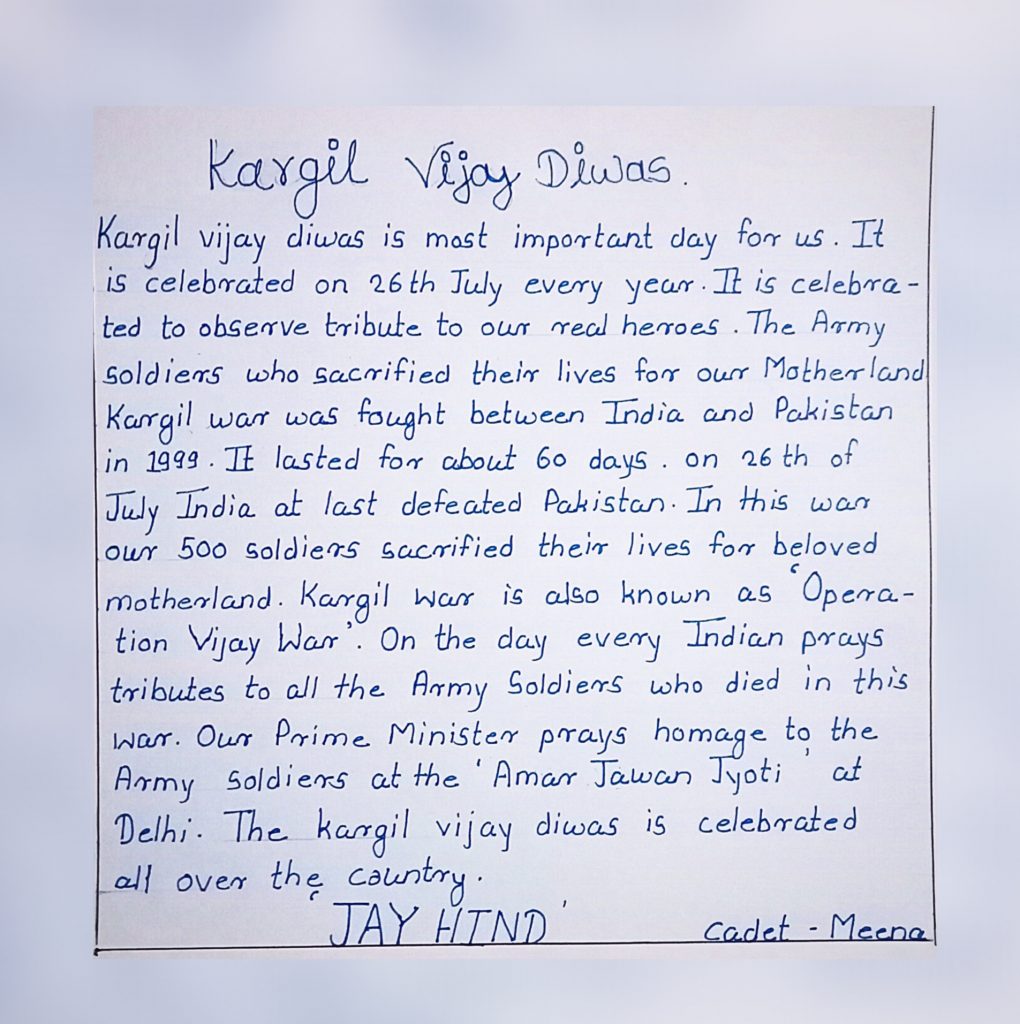 Kargil Vijay Diwas.
Kargil vijay diwas is most important day for us. It
is celebrated on 26th July every year. It is celebra-
ted to observe tribute to our real heroes. The Army
soldiers who sacrified their lives for our Motherland
Kargil war was fought between India and Pakistan
in 1999. It lasted for about 60 days. on 26th of
July India at last defeated Pakistan. In this war
our 500 soldiers sacrified their lives for beloved
motherland. Kargil war is also known as 'Opera-
tion Vijay War'. On the day every Indian prays
tributes to all the Army Soldiers who died in this
war. Our Prime Minister prays homage to the
Army soldiers at the 'Amar Jawan Jyoti' at
Delhi. The kargil vijay diwas is celebrated
all over the country.
'JAY HIND'
Cadet - Meena